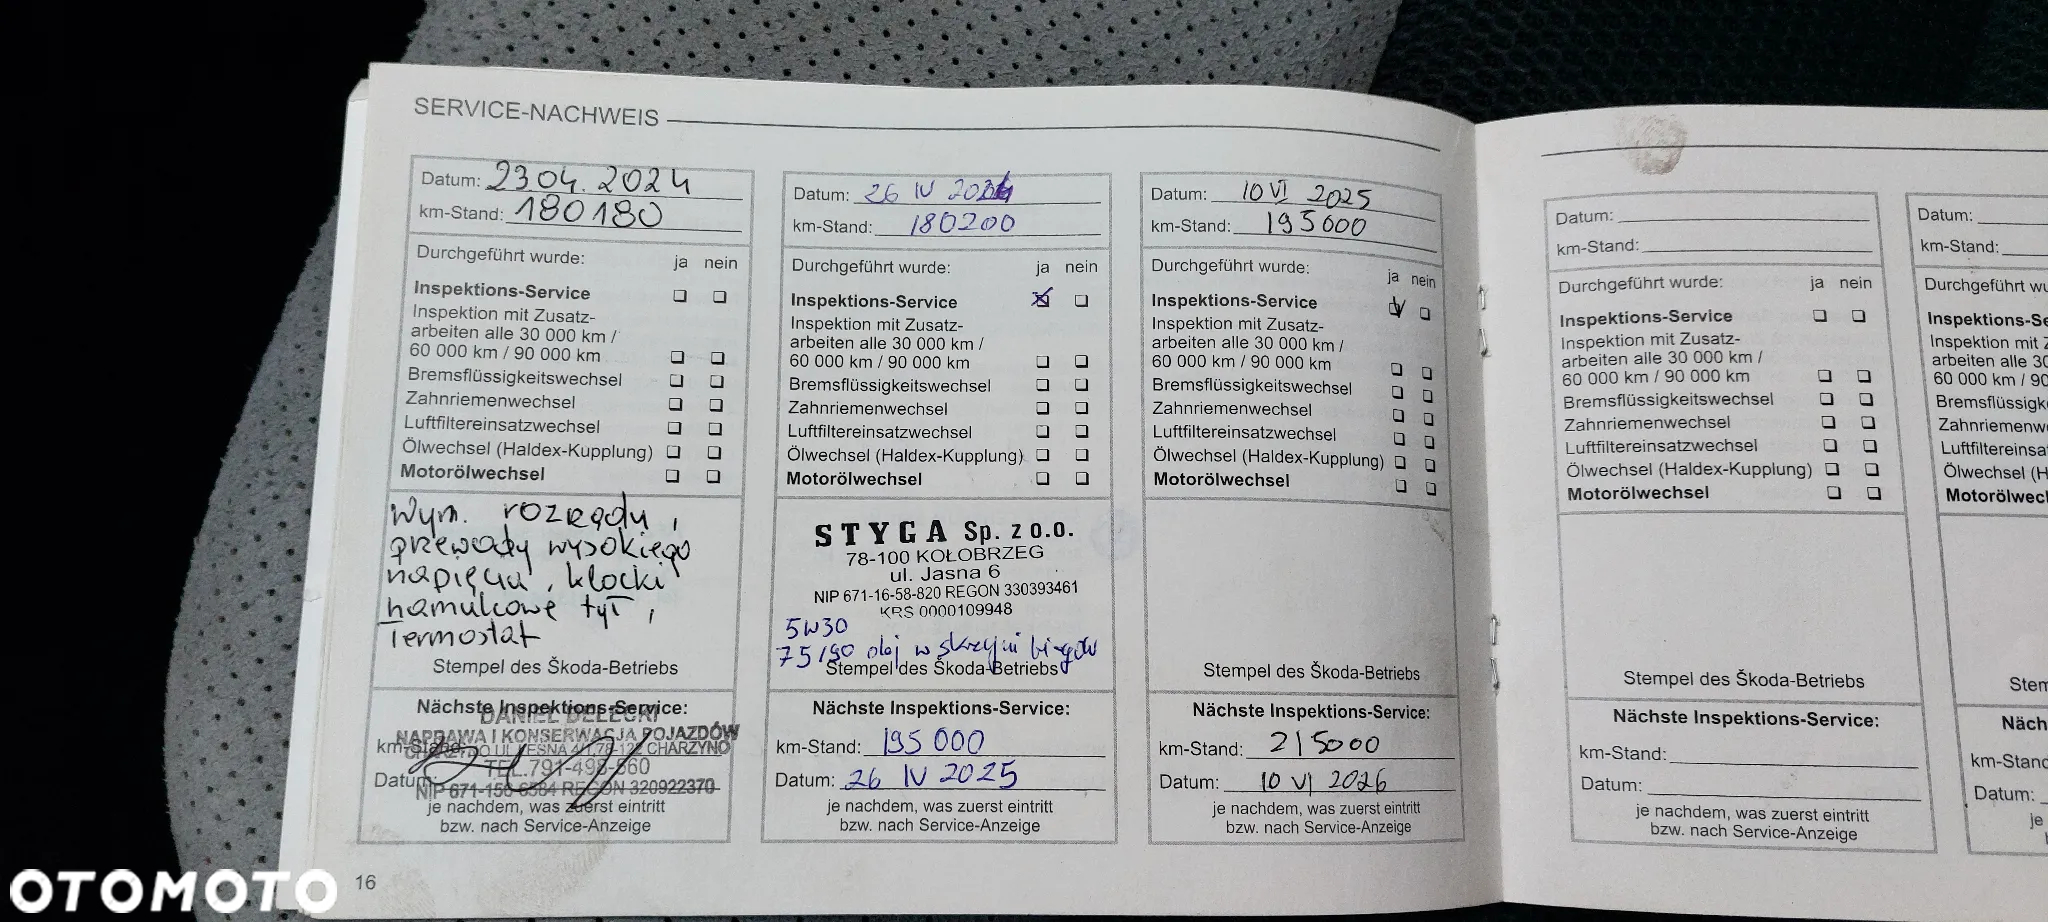 SERVICE-NACHWEIS
Datum: 23.04.2024
km-Stand: 180180
Durchgeführt wurde: ja nein
Inspektions-Service
Inspektion mit Zusatz-
arbeiten alle 30 000 km /
60 000 km / 90 000 km
Bremsflüssigkeitswechsel
Zahnriemenwechsel
Luftfiltereinsatzwechsel
Ölwechsel (Haldex-Kupplung)
Motorölwechsel
Wym. rozrządu,
przewody wysokiego
napięcia, klocki
hamulcowe tył,
Termostat
Stempel des Škoda-Betriebs
Nächste Inspektions-Service:
DANIEL
NAPRAWA I KONSERWACJA POJAZDÓW
km-Stand: CHARZYNO
TEL. 791-498-560
Datum:
NIP 671-156 6584 REGON 320922370
je nachdem, was zuerst eintritt
bzw. nach Service-Anzeige
16
Datum: 26 IV 2024
km-Stand: 180200
Durchgeführt wurde: ja nein
Inspektions-Service
Inspektion mit Zusatz-
arbeiten alle 30 000 km /
60 000 km / 90 000 km
Bremsflüssigkeitswechsel
Zahnriemenwechsel
Luftfiltereinsatzwechsel
Ölwechsel (Haldex-Kupplung)
Motorölwechsel
STYGA Sp. z o.o.
78-100 KOŁOBRZEG
ul. Jasna 6
NIP 671-16-58-820 REGON 330393461
KRS 0000109948
5W30
75/90 olej w skrzyni biegów
Stempel des Škoda-Betriebs
Nächste Inspektions-Service:
km-Stand: 195 000
Datum: 26 IV 2025
je nachdem, was zuerst eintritt
bzw. nach Service-Anzeige
Datum: 10 VI 2025
km-Stand: 195000
Durchgeführt wurde: ja nein
Inspektions-Service
Inspektion mit Zusatz-
arbeiten alle 30 000 km /
60 000 km / 90 000 km
Bremsflüssigkeitswechsel
Zahnriemenwechsel
Luftfiltereinsatzwechsel
Ölwechsel (Haldex-Kupplung)
Motorölwechsel
Stempel des Škoda-Betriebs
Nächste Inspektions-Service:
km-Stand: 215000
Datum: 10 VI 2026
je nachdem, was zuerst eintritt
bzw. nach Service-Anzeige
Datum:
km-Stand:
Durchgeführt wurde: ja nein
Inspektions-Service
Inspektion mit Zusatz-
arbeiten alle 30 000 km /
60 000 km / 90 000 km
Bremsflüssigkeitswechsel
Zahnriemenwechsel
Luftfiltereinsatzwechsel
Ölwechsel (Haldex-Kupplung)
Motorölwechsel
Stempel des Škoda-Betriebs
Nächste Inspektions-Service:
km-Stand:
Datum:
je nachdem, was zuerst eintritt
bzw. nach Service-Anzeige
Datum:
km-Stand:
Durchgeführt wu
Inspektions-Se
Inspektion mit Z
arbeiten alle 30
60 000 km / 90
Bremsflüssigk
Zahnriemenw
Luftfiltereinsa
Ölwechsel (H
Motorölwecl
Stem
Nächs
km-Stand
Datum:
je
b
OTOMOTO